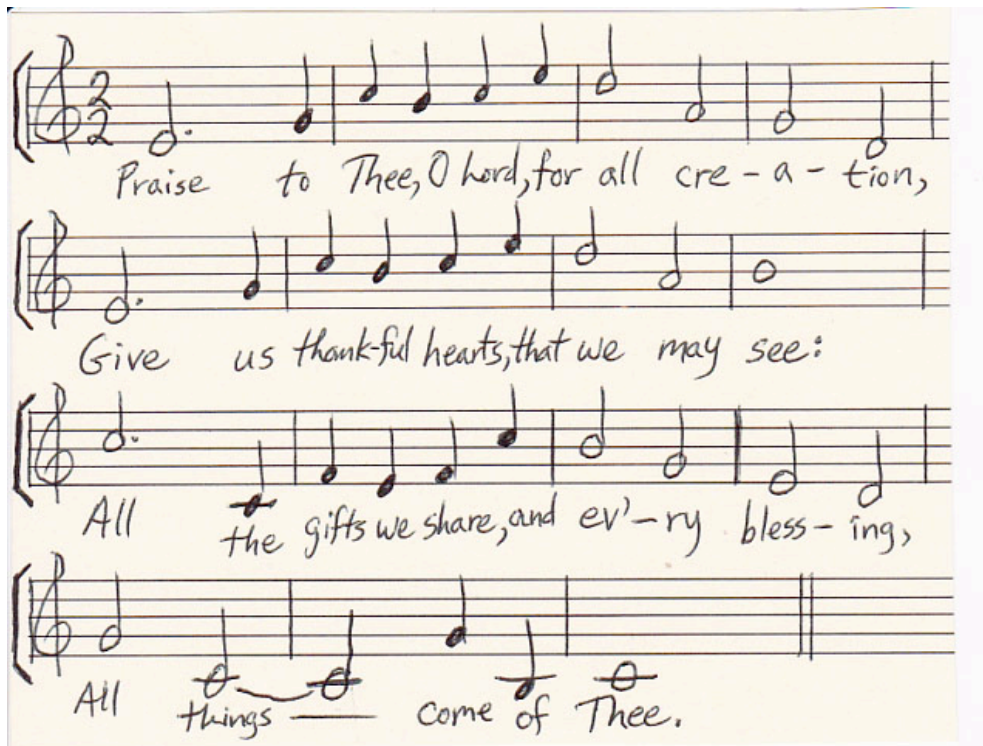 2
2
Praise to Thee, O Lord, for all cre-a-tion,
Give us thank-ful hearts, that we may see:
All the gifts we share, and ev'-ry bless-ing,
All things — come of Thee.